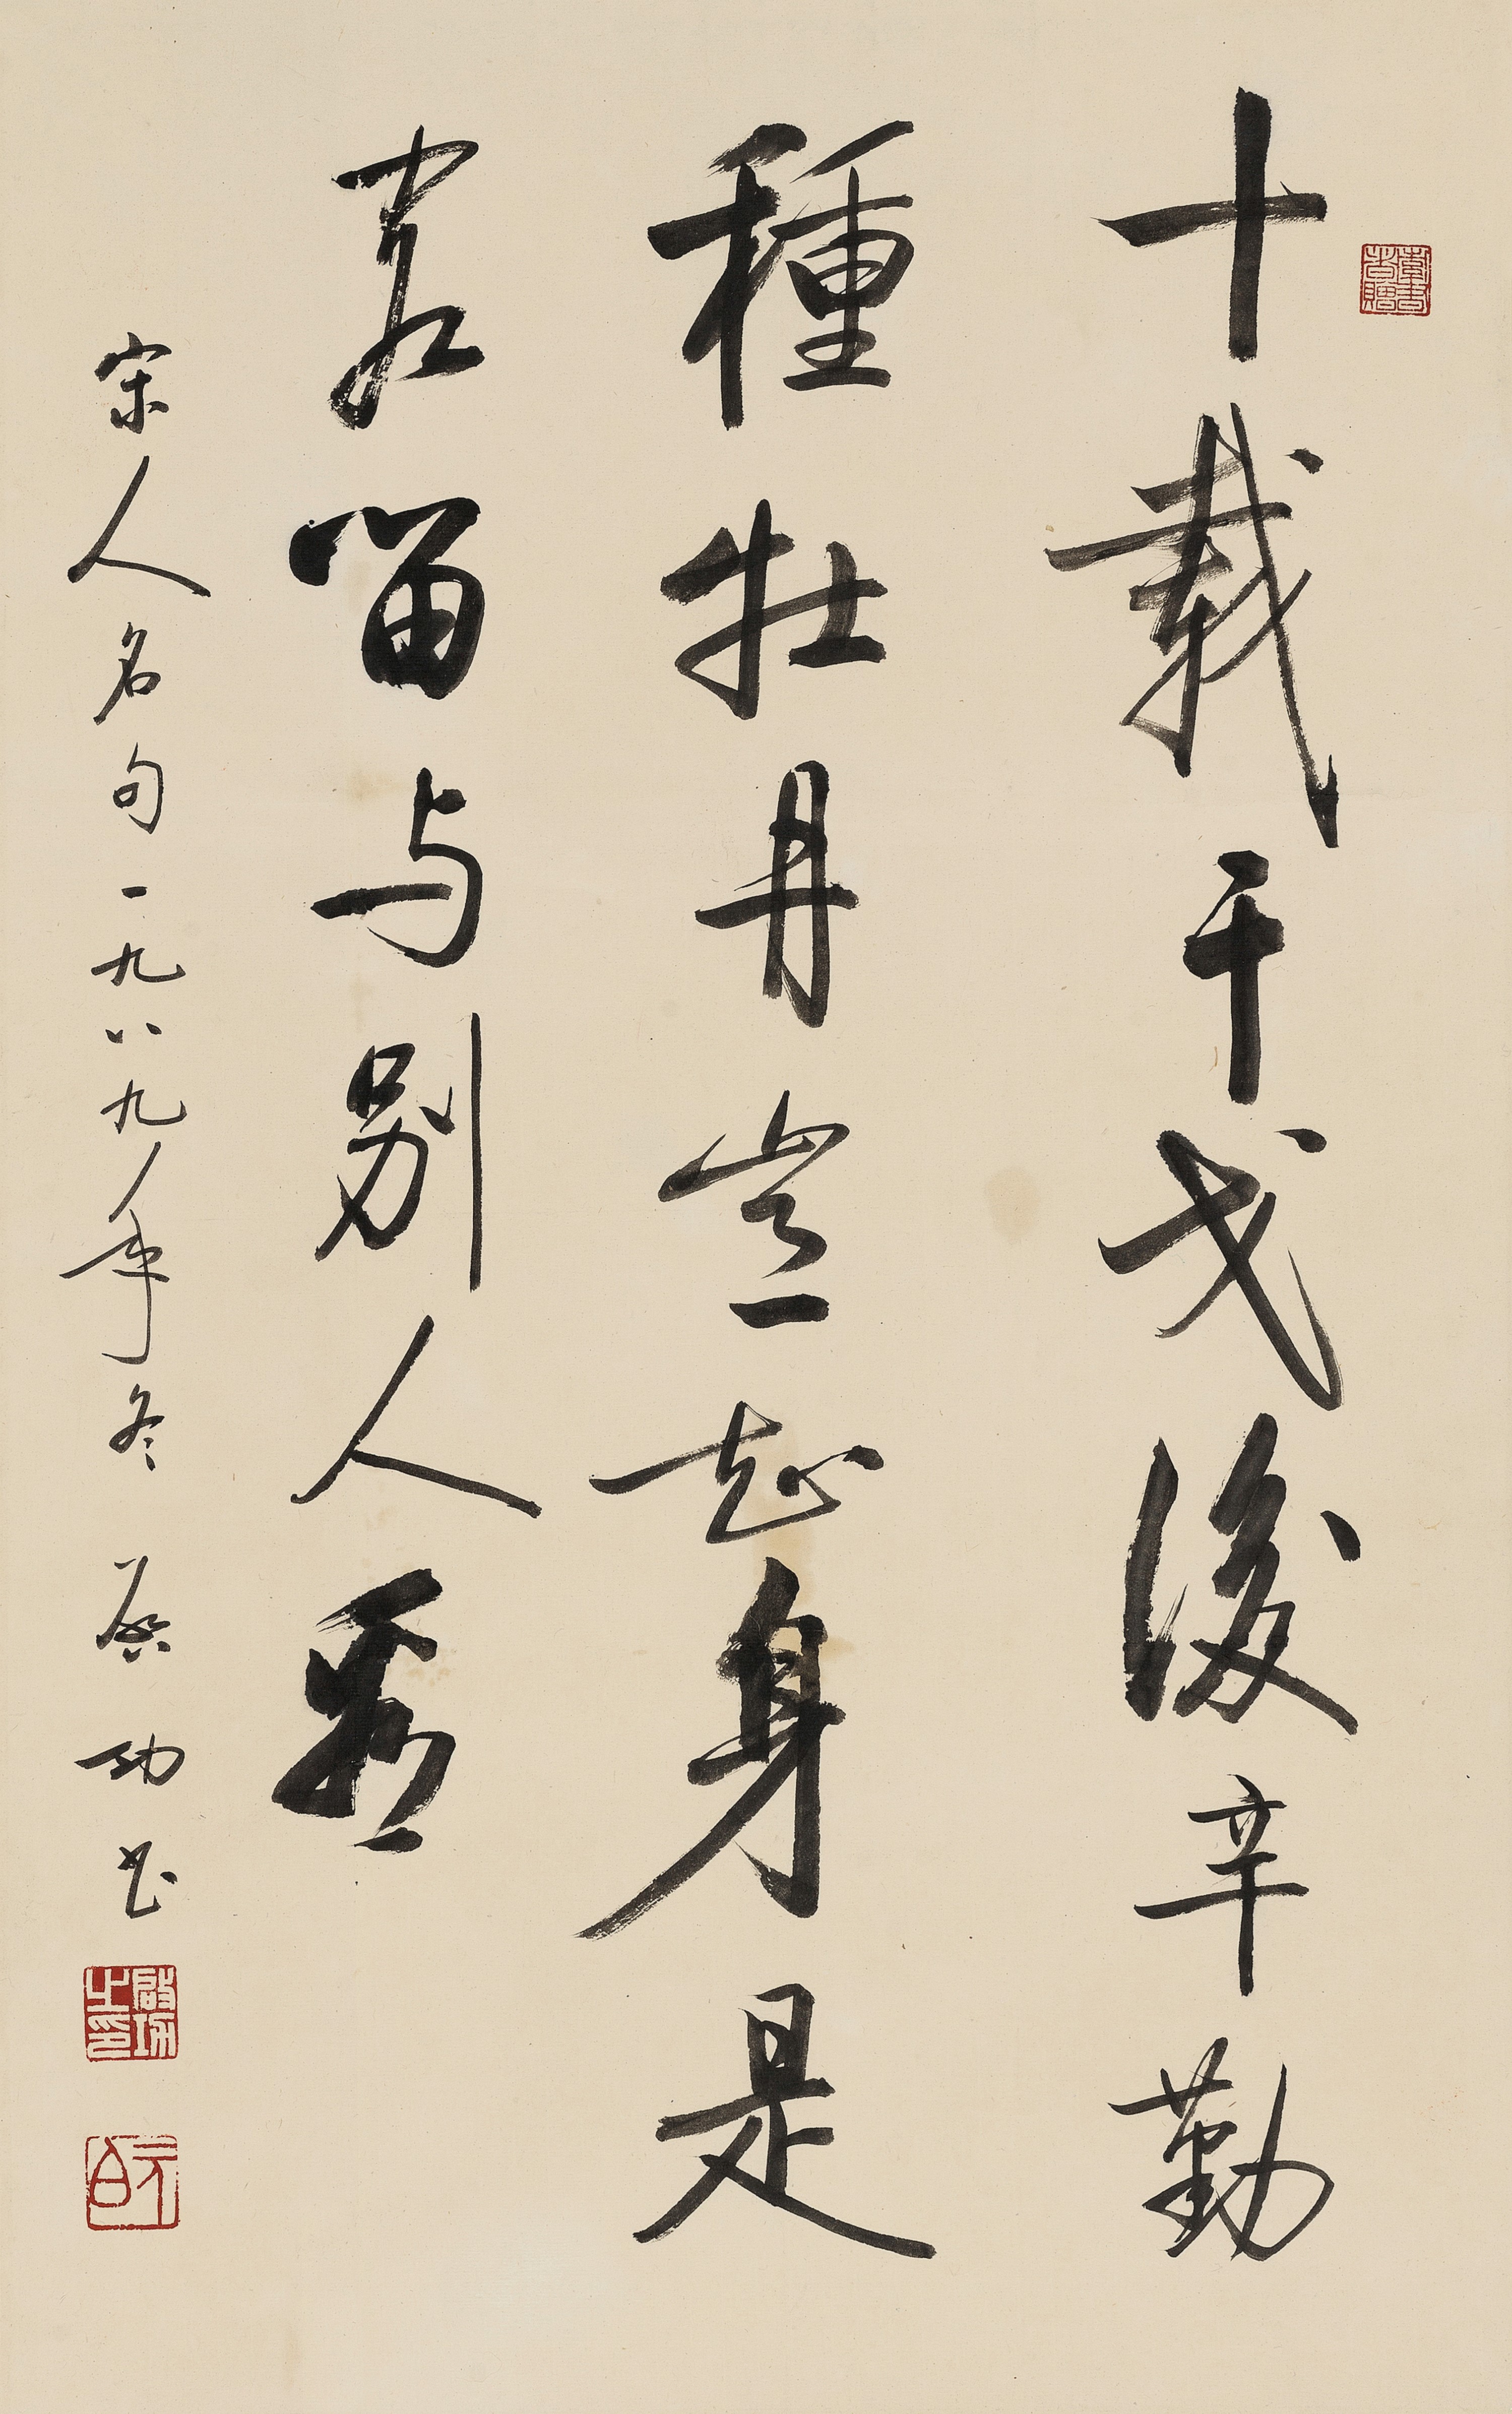 十載干戈後辛勤
種牡丹豈知身是
客留与别人看
宋人名句一九八九年冬 启功书
啟功之印
元白